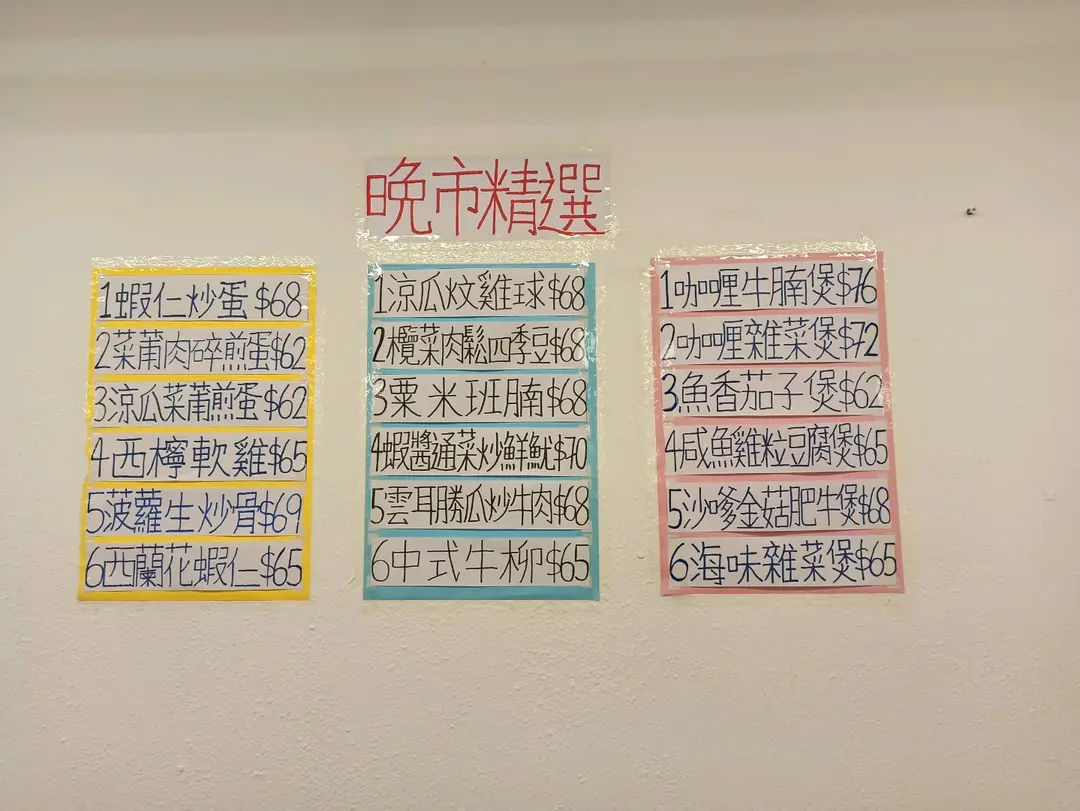 晚市精選
1蝦仁炒蛋$68
2菜莆肉碎煎蛋$62
3涼瓜菜莆煎蛋$62
4西檸軟雞$65
5菠蘿生炒骨$69
6西蘭花蝦仁$65
1涼瓜炆雞球$68
2欖菜肉鬆四季豆$68
3粟米班腩$68
4蝦醬通菜炒鮮魷$70
5雲耳勝瓜炒牛肉$68
6中式牛柳$65
1咖喱牛腩煲$76
2咖喱雜菜煲$72
3魚香茄子煲$62
4咸魚雞粒豆腐煲$65
5沙嗲金菇肥牛煲$68
6海味雜菜煲$65